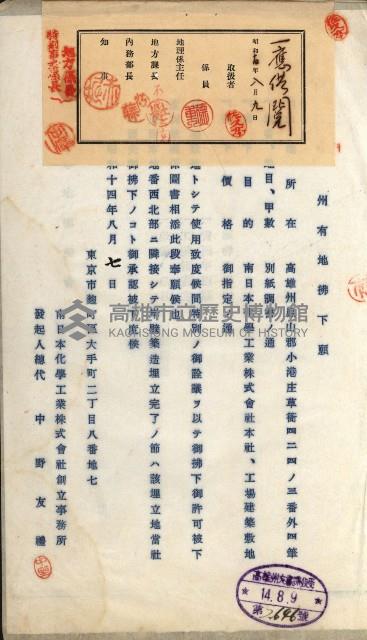 一應供覽
昭和14年八月九日
取扱者
係員
地理係主任
地方課長
內務部長
知事
州有地拂下願
所在 高雄州鳳山郡小港庄草衙四二四ノ三番外四筆
地目、甲數 別紙調書ノ通
目的 南日本化學工業株式會社本社、工場建築敷地
價格 御指定ノ通
地トシテ使用致度候間特別ノ御詮議ヲ以テ御拂下御許可被下
圖書相添此段奉願候也
地番西北部ニ隣接シ
築造埋立完了ノ節ハ該埋立地當社
御拂下ノコト御承認被下度候
和十四年八月七日
東京市麴町區大手町二丁目八番地七
南日本化學工業株式會社創立事務所
發起人總代 中野友禮
高雄市立歷史博物館
KAOHSIUNG MUSEUM OF HISTORY
14.8.9
第2646號